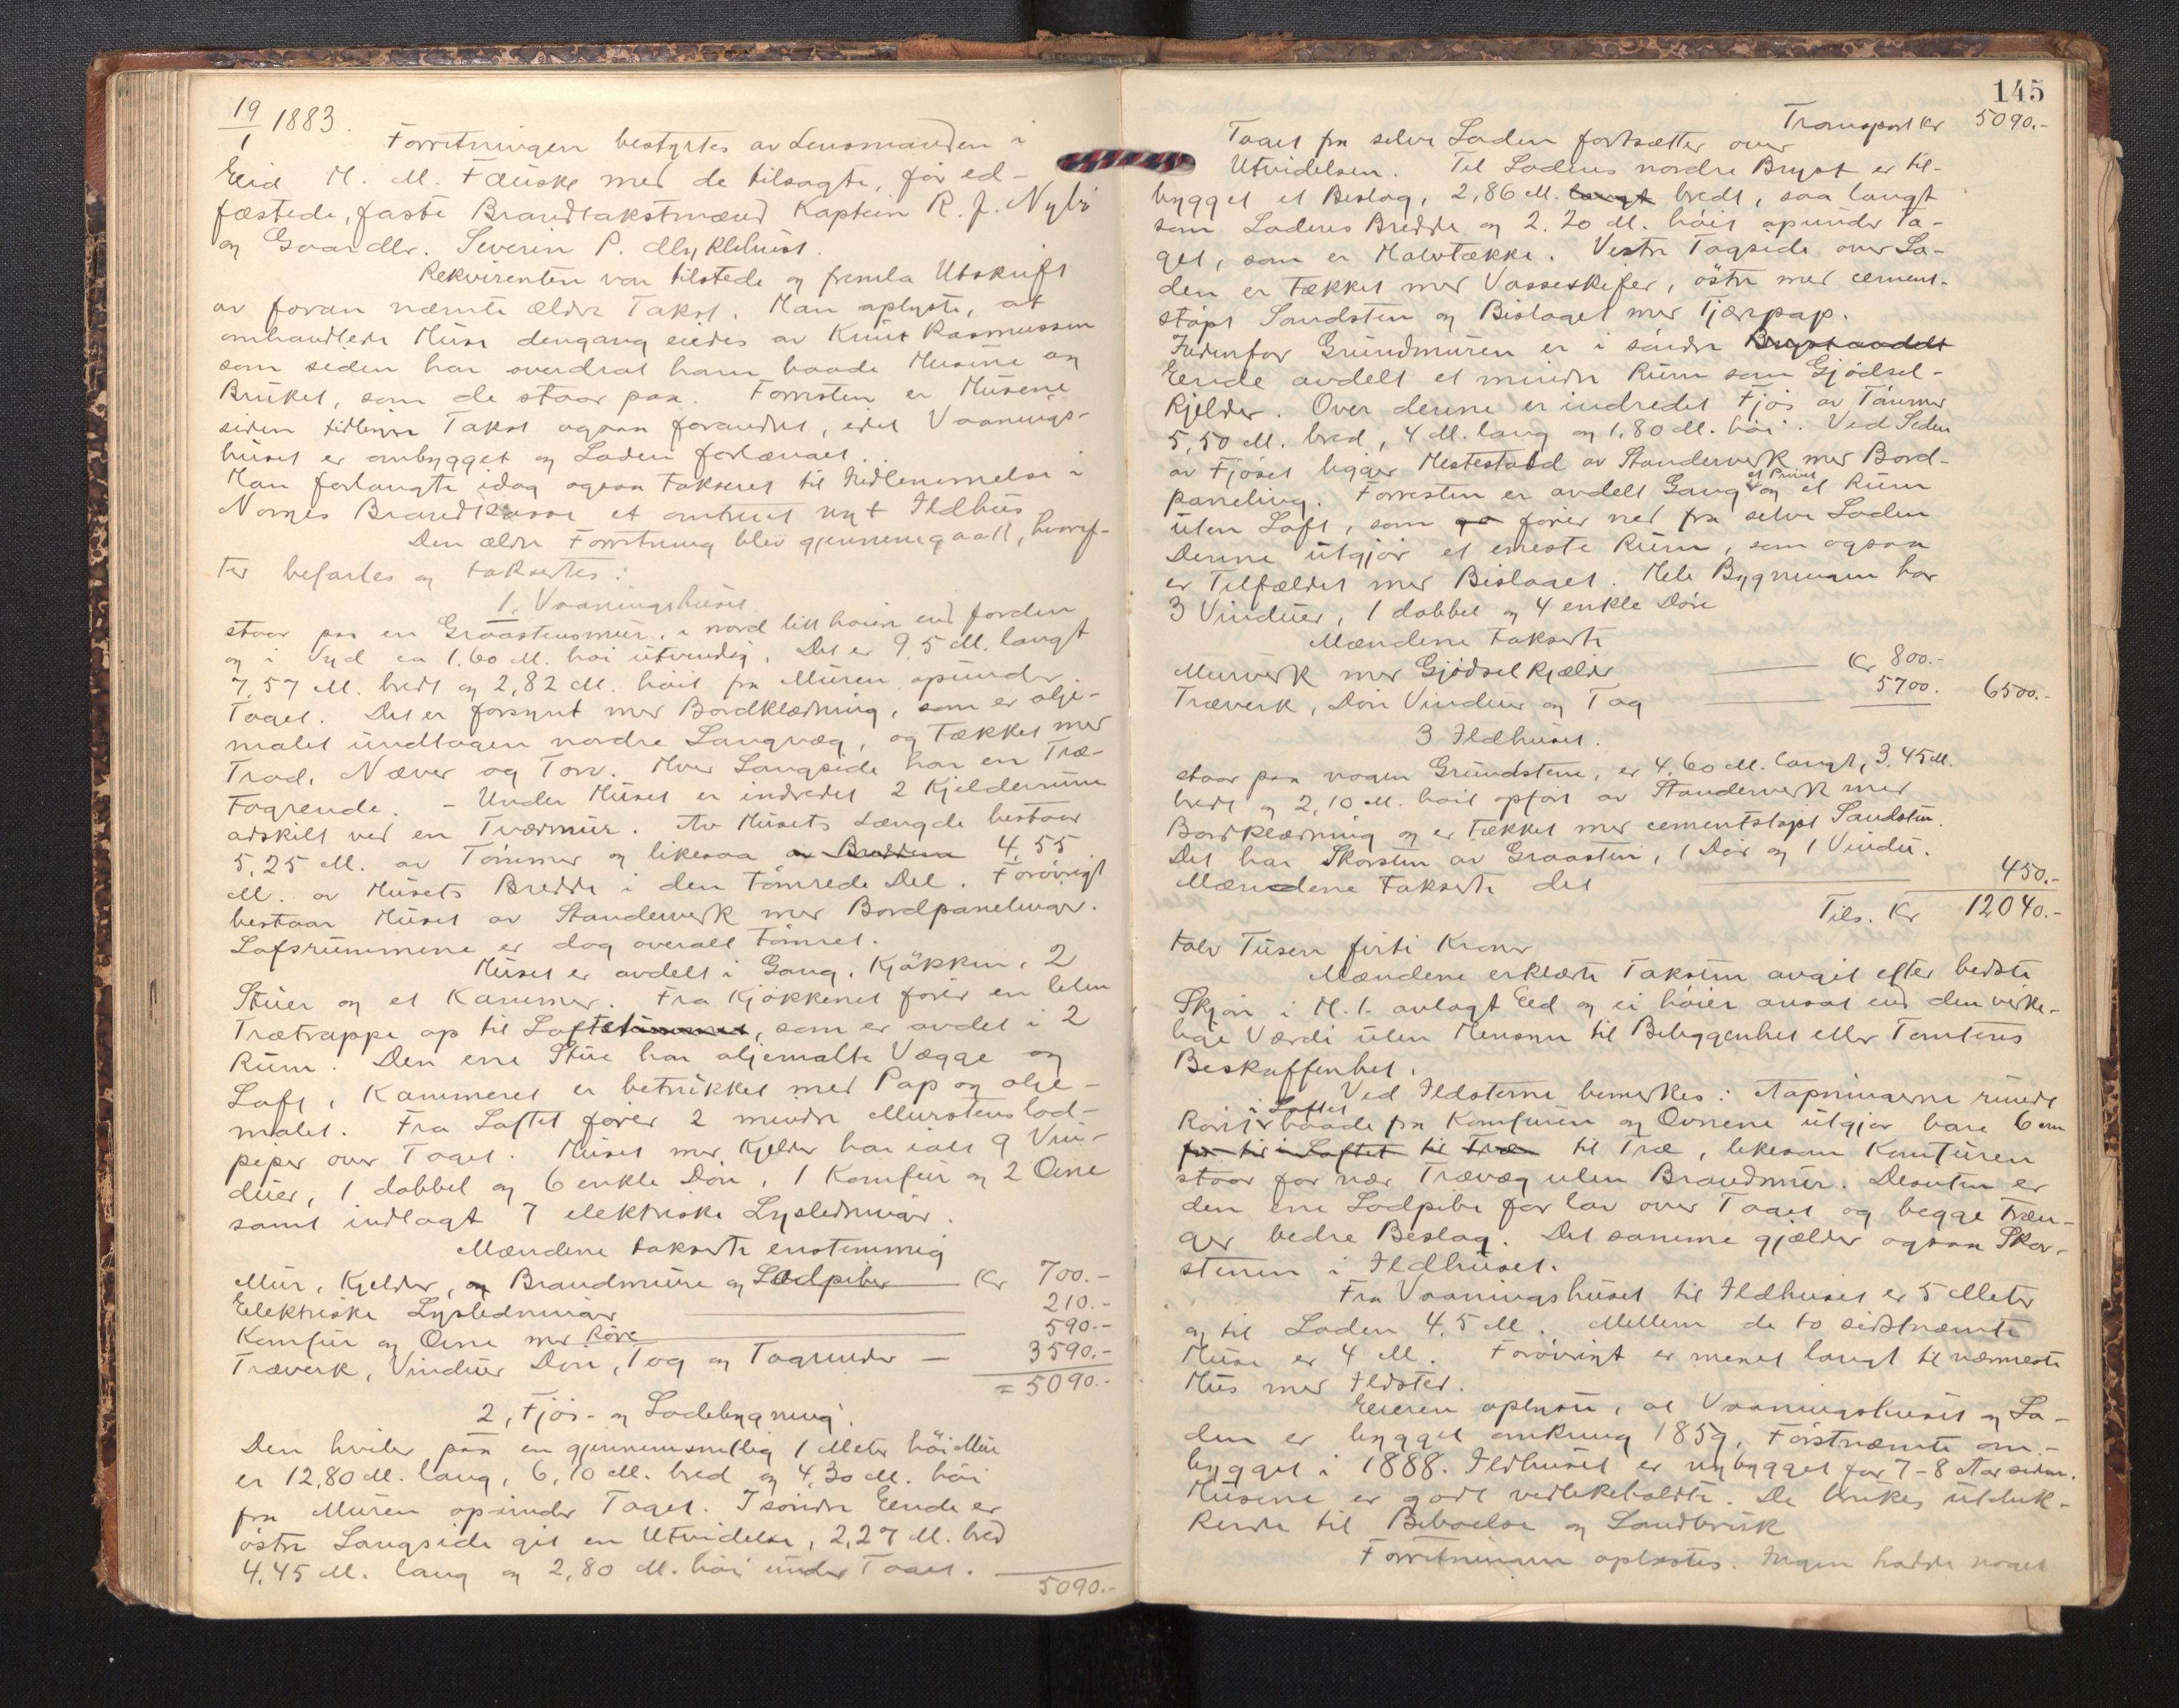 19/1 1883.
Forretningen bestyrtes av Lensmanden i
Eid H. M. Fauske med de tilsagte, før ed-
fæstede, faste Brandtakstmænd Kaptein R. J. Nybø
og Gaardbr. Severin P. Myklebust.
Rekvirenten var tilstede og fremla Utskrift
av foran nævnte ældre Takst. Han oplyste, at
omhandlede Huse dengang eiedes av Knut Rasmussen
som siden har overdrat ham baade Husene og
Bruket, som de staar paa. Forresten er Husene
siden tidligere Takst ogsaa forandret, idet Vaanings-
huset er ombygget og Laden forlænget.
Han forlangte idag ogsaa takseret til Indlemmelse i
Norges Brandkasse et omtrent nyt Ildhus
Den ældre Forretning blev gjennemgaatt, hvoref-
ter befartes og taksertes:
1. Vaaningshuset
staar paa en Graastensmur, i nord litt høiere end Jorden
og i Syd ca 1.60 M. høi utvendig. Det er 9,5 M. langt
7,57 M. bredt og 2,82 M. høit fra Muren opunder
Taget. Det er forsynt med Bordklædning, som er olje-
malet undtagen nordre Langvæg, og tækket med
Trod, Næver og Torv. Hver Langside har en Træ-
tagrende. - Under Huset er indredet 2 Kjelderrum
adskilt ved en Tværmur. Av Husets Længde bestaar
5,25 M. av Tømmer og likesaa av Bredden 4,55
M. av Husets Bredde i den tømrede Del. Forøvrigt
bestaar Huset av Standerverk med Bordpanelinger.
Loftsrummene er dog overalt tømret.
Huset er avdelt i Gang, Kjøkken, 2
Stuer og et Kammer. Fra Kjøkkenet fører en liten
Trætrappe op til Loftet, som er avdelt i 2
Rum. Den ene Stue har oljemalte Vægge og
Loft, Kammeret er betrukket med Pap og olje-
malet. Fra Loftet fører 2 mindre Murstenslod-
piper over Taget. Huset med Kjelder har ialt 9 Vin-
duer, 1 dobbel og 6 enkle Døre, 1 Komfur og 2 Ovne
samt indlagt 7 elektriske Lysledninger.
Mændene takserte enstemmig
Mur, Kjelder, og Brandmure og Lodpiber Kr 700.-
Elektriske Lysledninger 210.-
Komfur og Ovne med Røre 590.-
Træverk, Vinduer Døre, Tag og Tagrender — 3590.-
= 5090.-
2, Fjøs- og Ladebygning.
Den hviler paa en gjennemsnitlig 1 Meter høi Mur
er 12,80 M. lang, 6,10 M. bred og 4,30 M. høi
fra Muren opunder Taget. I søndre Ende er
østre Langside git en Utvidelse, 2,27 M. bred
4,45 M. lang og 2,80 M. høi under Taget.
5090.-
145
Transport kr 5090.-
Taget fra selve Laden fortsætter over
Utvidelsen. Til Ladens nordre Bryst er til-
bygget et Beslag, 2,86 M. langt bredt, saa langt
som Ladens Bredde og 2.20 M. høit opunder Ta-
get, som er Halvtække. Vestre Tagside over La-
den er tækket med Vosseskifer, østre med cement-
støpt Sandsten og Bislaget med Tjærepap.
Indenfor Grundmuren er i søndre Bryst avdelt
Eende avdelt et mindre Rum som Gjødsel-
kjelder. Over denne er indredet Fjøs av Tømmer
5,50 M. bred, 4 M. lang og 1,80 M. høi. Ved Siden
av Fjøset ligger Hestestald av Standerverk med Bord-
paneling. Forresten er avdelt Gang et Privet og et Rum
uten Loft, som fører ned fra selve Laden
Denne utgjør et eneste Rum, som ogsaa
er Tilfældet med Bislaget. Hele Bygningen har
3 Vinduer, 1 dobbel og 4 enkle Døre
Mændene takserte
Murverk med Gjødselkjelder Kr 800.-
Træverk, Døre Vinduer og Tag 5700. 6500.-
3 Ildhuset.
staar paa nogen Grundstene, er 4,60 M. langt, 3,45 M.
bredt og 2,10 M. høit opført av Standerverk med
Bordklædning og er tækket med cementstøpt Sandsten.
Det har Skorsten av Graasten, 1 Dør og 1 Vindu.
Mændene takserte det 450.-
Tils. Kr 12040.-
tolv Tusen firti Kroner
Mændene erklærte Taksten avgit efter bedste
Skjøn i H. t. avlagt Eed og ei høiere ansat end den virke-
lige Værdi uten Hensyn til Beliggenhet eller Tomtens
Beskaffenhet.
Ved Ildsterne bemerkes: Aapningerne rundt
Røret i Loftet baade fra Komfuren og Ovnene utgjør bare 6 cm
for til i Loftet til Træ til Træ, likesom Komfuren
staar for nær Trævæg uten Brandmur. Desuten er
den ene Lodpibe for lav over Taget og begge træn-
ger bedre Beslag. Det samme gjælder ogsaa Skor-
stenen i Ildhuset.
Fra Vaaningshuset til Ildhuset er 5 Meter
og til Laden 4,5 M. Mellem de to sidstnævnte
Huse er 4 M. Forøvrigt er meget langt til nærmeste
Hus med Ildsted.
Eieren oplyste, at Vaaningshuset og La-
den er bygget omkring 1859, Førstnævnte om-
bygget i 1888. Ildhuset er nybygget for 7-8 Aar siden.
Husene er godt vedlikeholdte. De brukes uteluk-
kende til Beboelse og Landbruk
Forretningen oplæstes. Ingen hadde noget